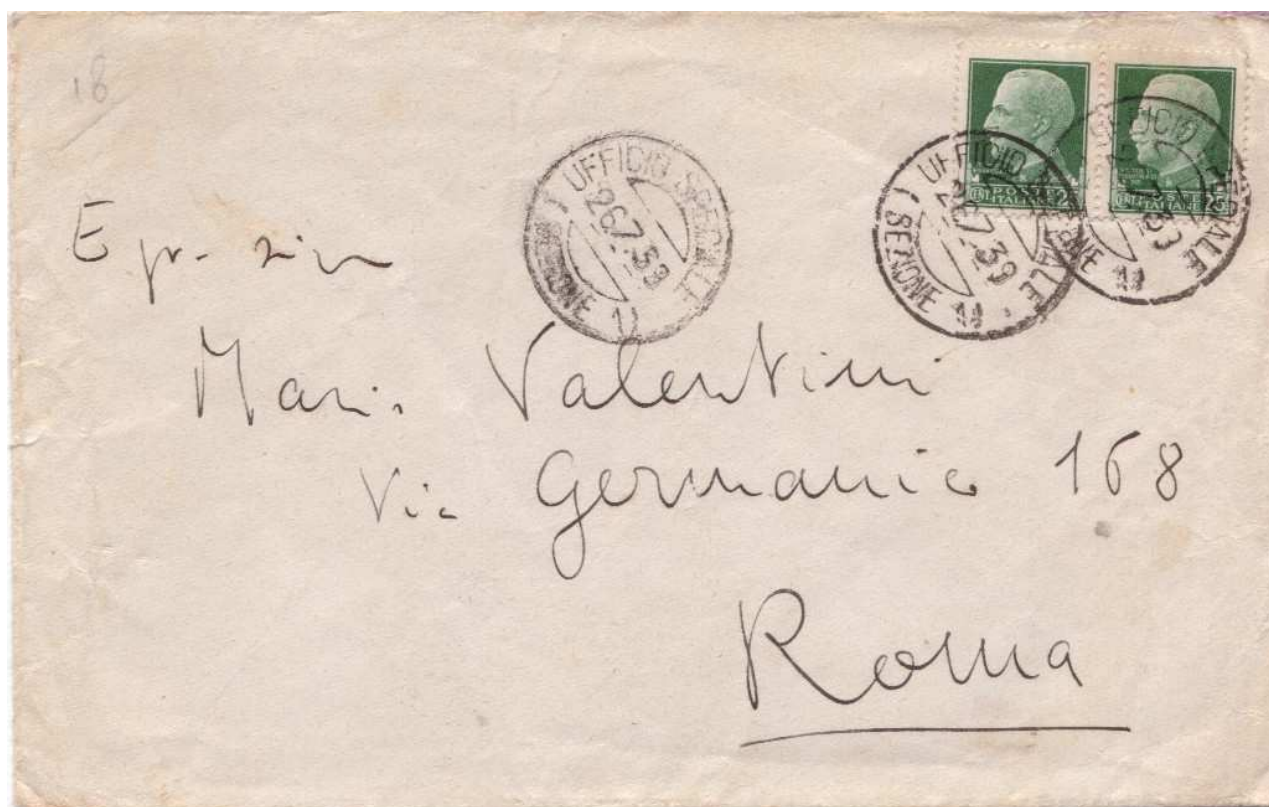 18
UFFICIO SPECIALE
26.7.39
(SEZIONE 1)
UFFICIO SPECIALE
26.7.39
(SEZIONE 1)
UFFICIO SPECIALE
(SEZIONE 1)
CENT POSTE 25
ITALIANE
CENT POSTE 25
ITALIANE
Valentini
Via Germania 168
Roma